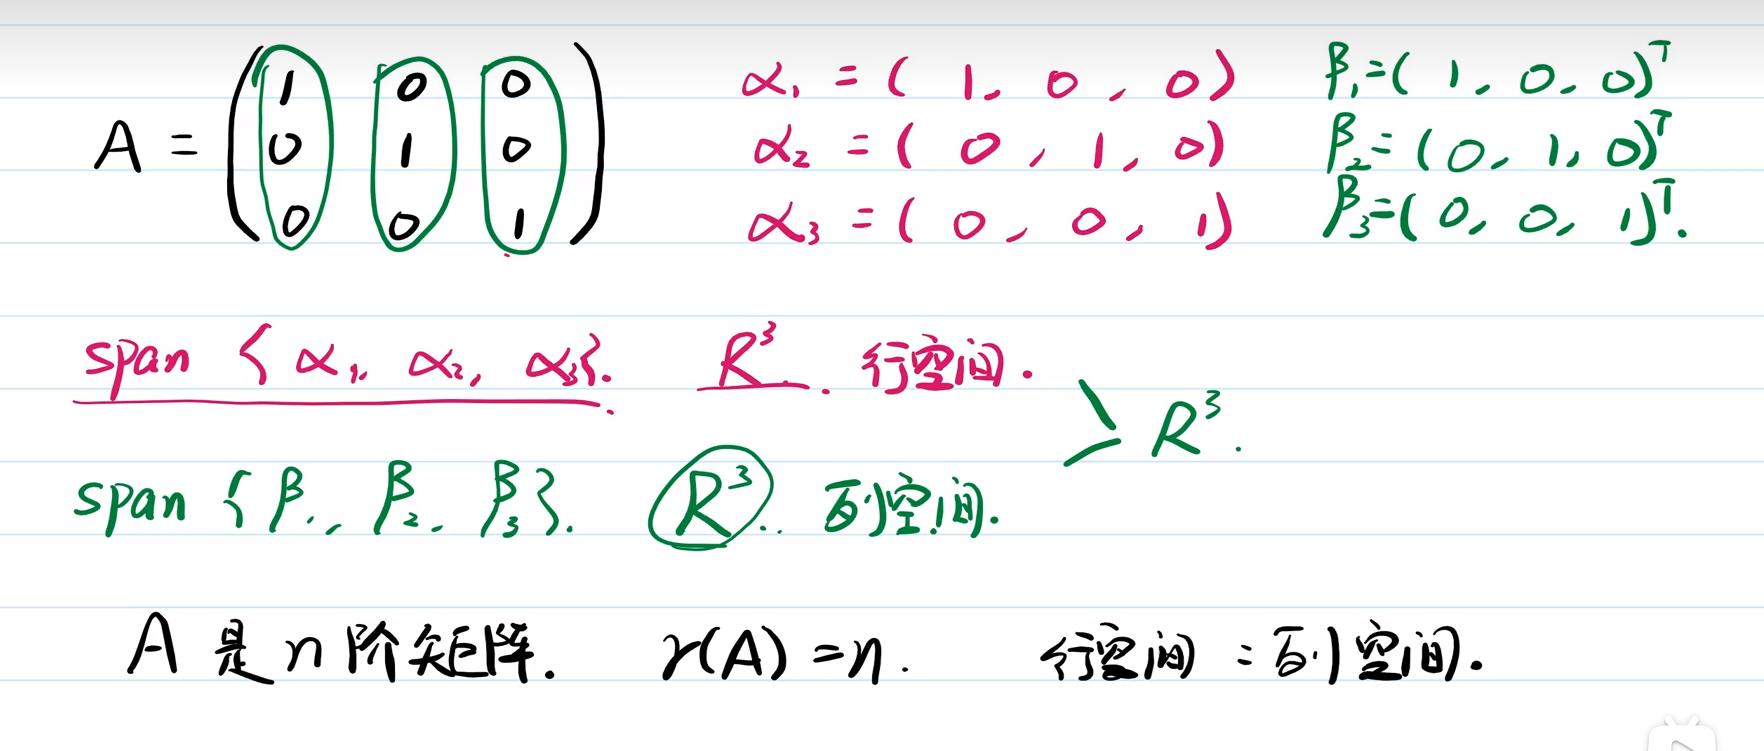 A = ( 1 0 0 α₁ = ( 1, 0, 0) β₁=( 1, 0, 0)ᵀ
0 1 0 α₂ = ( 0, 1, 0) β₂=(0, 1, 0)ᵀ
0 0 1 ) α₃ = ( 0, 0, 1) β₃=( 0, 0, 1)ᵀ.
span { α₁, α₂, α₃}. R³. 行空间.
> R³.
span { β₁, β₂, β₃}. R³. 列空间.
A 是 n 阶矩阵. r(A) = n. 行空间 = 列空间.